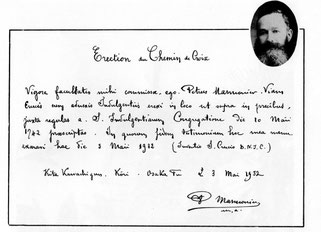 Erection du Chemin de Croix
Vigore facultatis mihi commissae, ego, Petrus Marmonier, Viam
Crucis cum adnexis Indulgentiis erexi in loco ut supra in precibus,
juxta regulas a S. Indulgentiarum Congregatione die 10 Maii
1742 praescriptas. In quorum fidem testimonium hoc mea manu
exaravi hac die 3 Maii 1912 (Inventio S. Crucis D.N.J.C.)
Kita Kawachigun, Kōri, Osaka Fu le 3 Mai 1912
P Marmonier